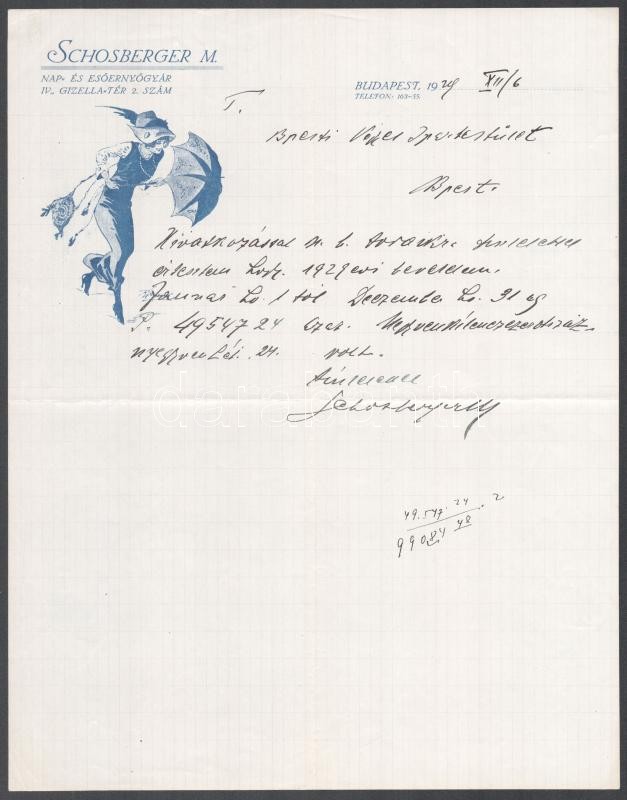 SCHOSBERGER M.
NAP- ÉS ESŐERNYŐGYÁR
IV., GIZELLA-TÉR 2. SZÁM
BUDAPEST, 1929 XII/6
TELEFON: 163-55.
T.
Bpesti
Bpest.
Hivatkozással
értesitem hogy 1929 évi bevételem
Január hó 1 től Deczember hó 31 ig
P. 49547 24 azaz Negyvenkilenczezerötszáz
negyvenhét. 24. volt.
tisztelettel
Schosberger M
49.547.24 . 2
99084 48